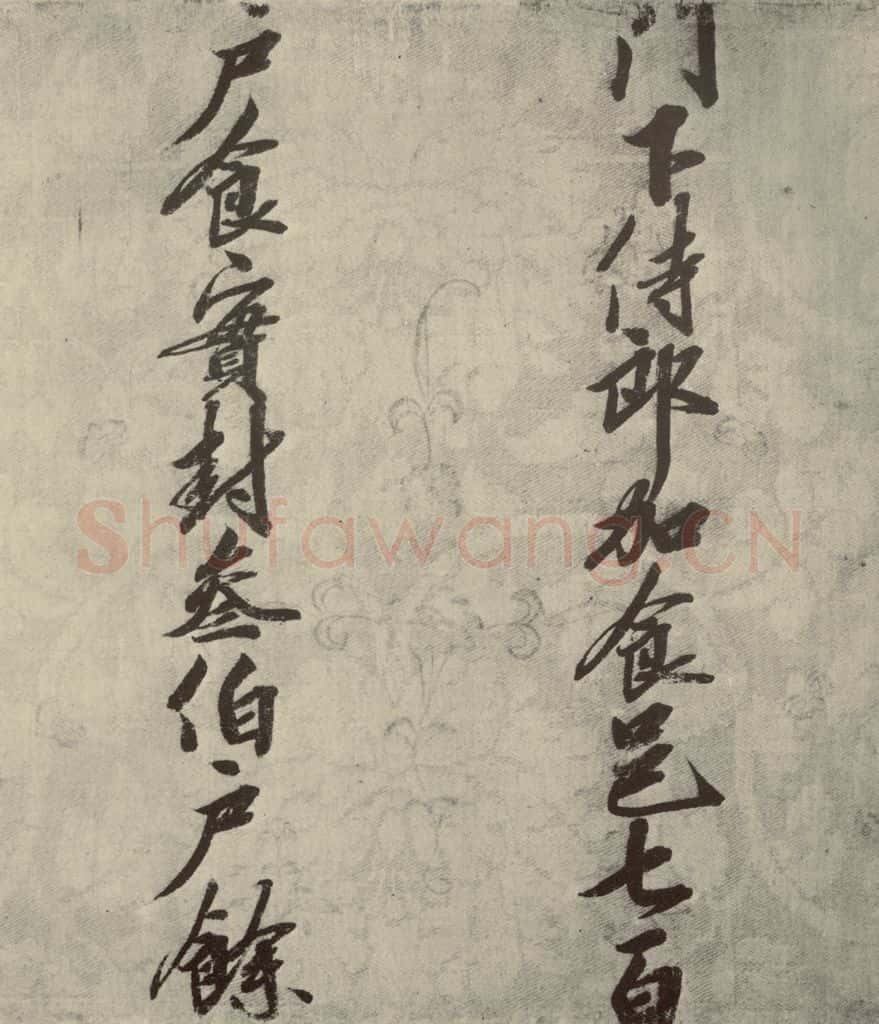 門下侍郎加食邑七百
戶食實封叁伯戶餘
Shufawang.CN